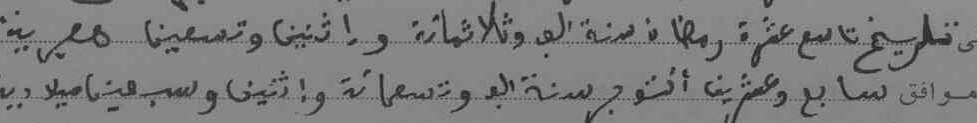 في تاريخ تاسع عشرة رمضان سنة الف وثلاثمائة واثنين وتسعين هجرية
موافق سابع وعشرين أكتوبر سنة الف وتسعمائة واثنين وسبعين ميلادية